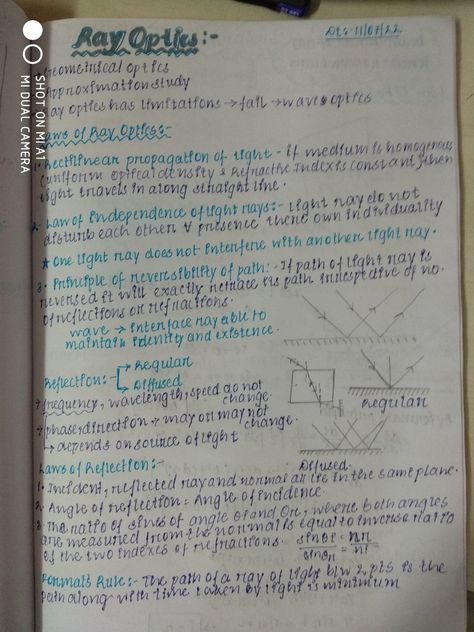 Ray Optics:-
Dt:- 11/07/22
Geometrical optics
Approximation study
Ray optics has limitations → fail → wave optics
Laws of Ray Optics:-
1. Rectilinear propagation of light - if medium is homogenous
(uniform optical density & Refractive Index is constant) then
light travels in along straight line.
2. Law of Independence of light rays:- light ray do not
disturb each other & presence there own individuality
* One light ray does not interfere with another light ray.
3. Principle of reversibility of path:- If path of light ray is
reversed it will exactly retrace its path irrespective of no.
of reflections or refractions.
wave → interface ray able to
maintain identity and existence.
Reflection:- → Regular
→ Diffused
→ frequency, wavelength, speed do not
change.
→ phase, direction → may or may not
change.
→ depends on source of light
Regular
Diffused
Laws of Reflection:-
1. Incident, reflected ray and normal all lie in the same plane.
2. Angle of reflection = Angle of incidence.
3. The ratio of sines of angle θi and θr, where both angles
are measured from the normal is equal to inverse ratio
of the two indexes of refractions. sinθi / sinθr = nr / ni
Rule:- The path of a ray of light b/w 2 pts is the
path along with time taken by light is minimum
SHOT ON MI A1
MI DUAL CAMERA